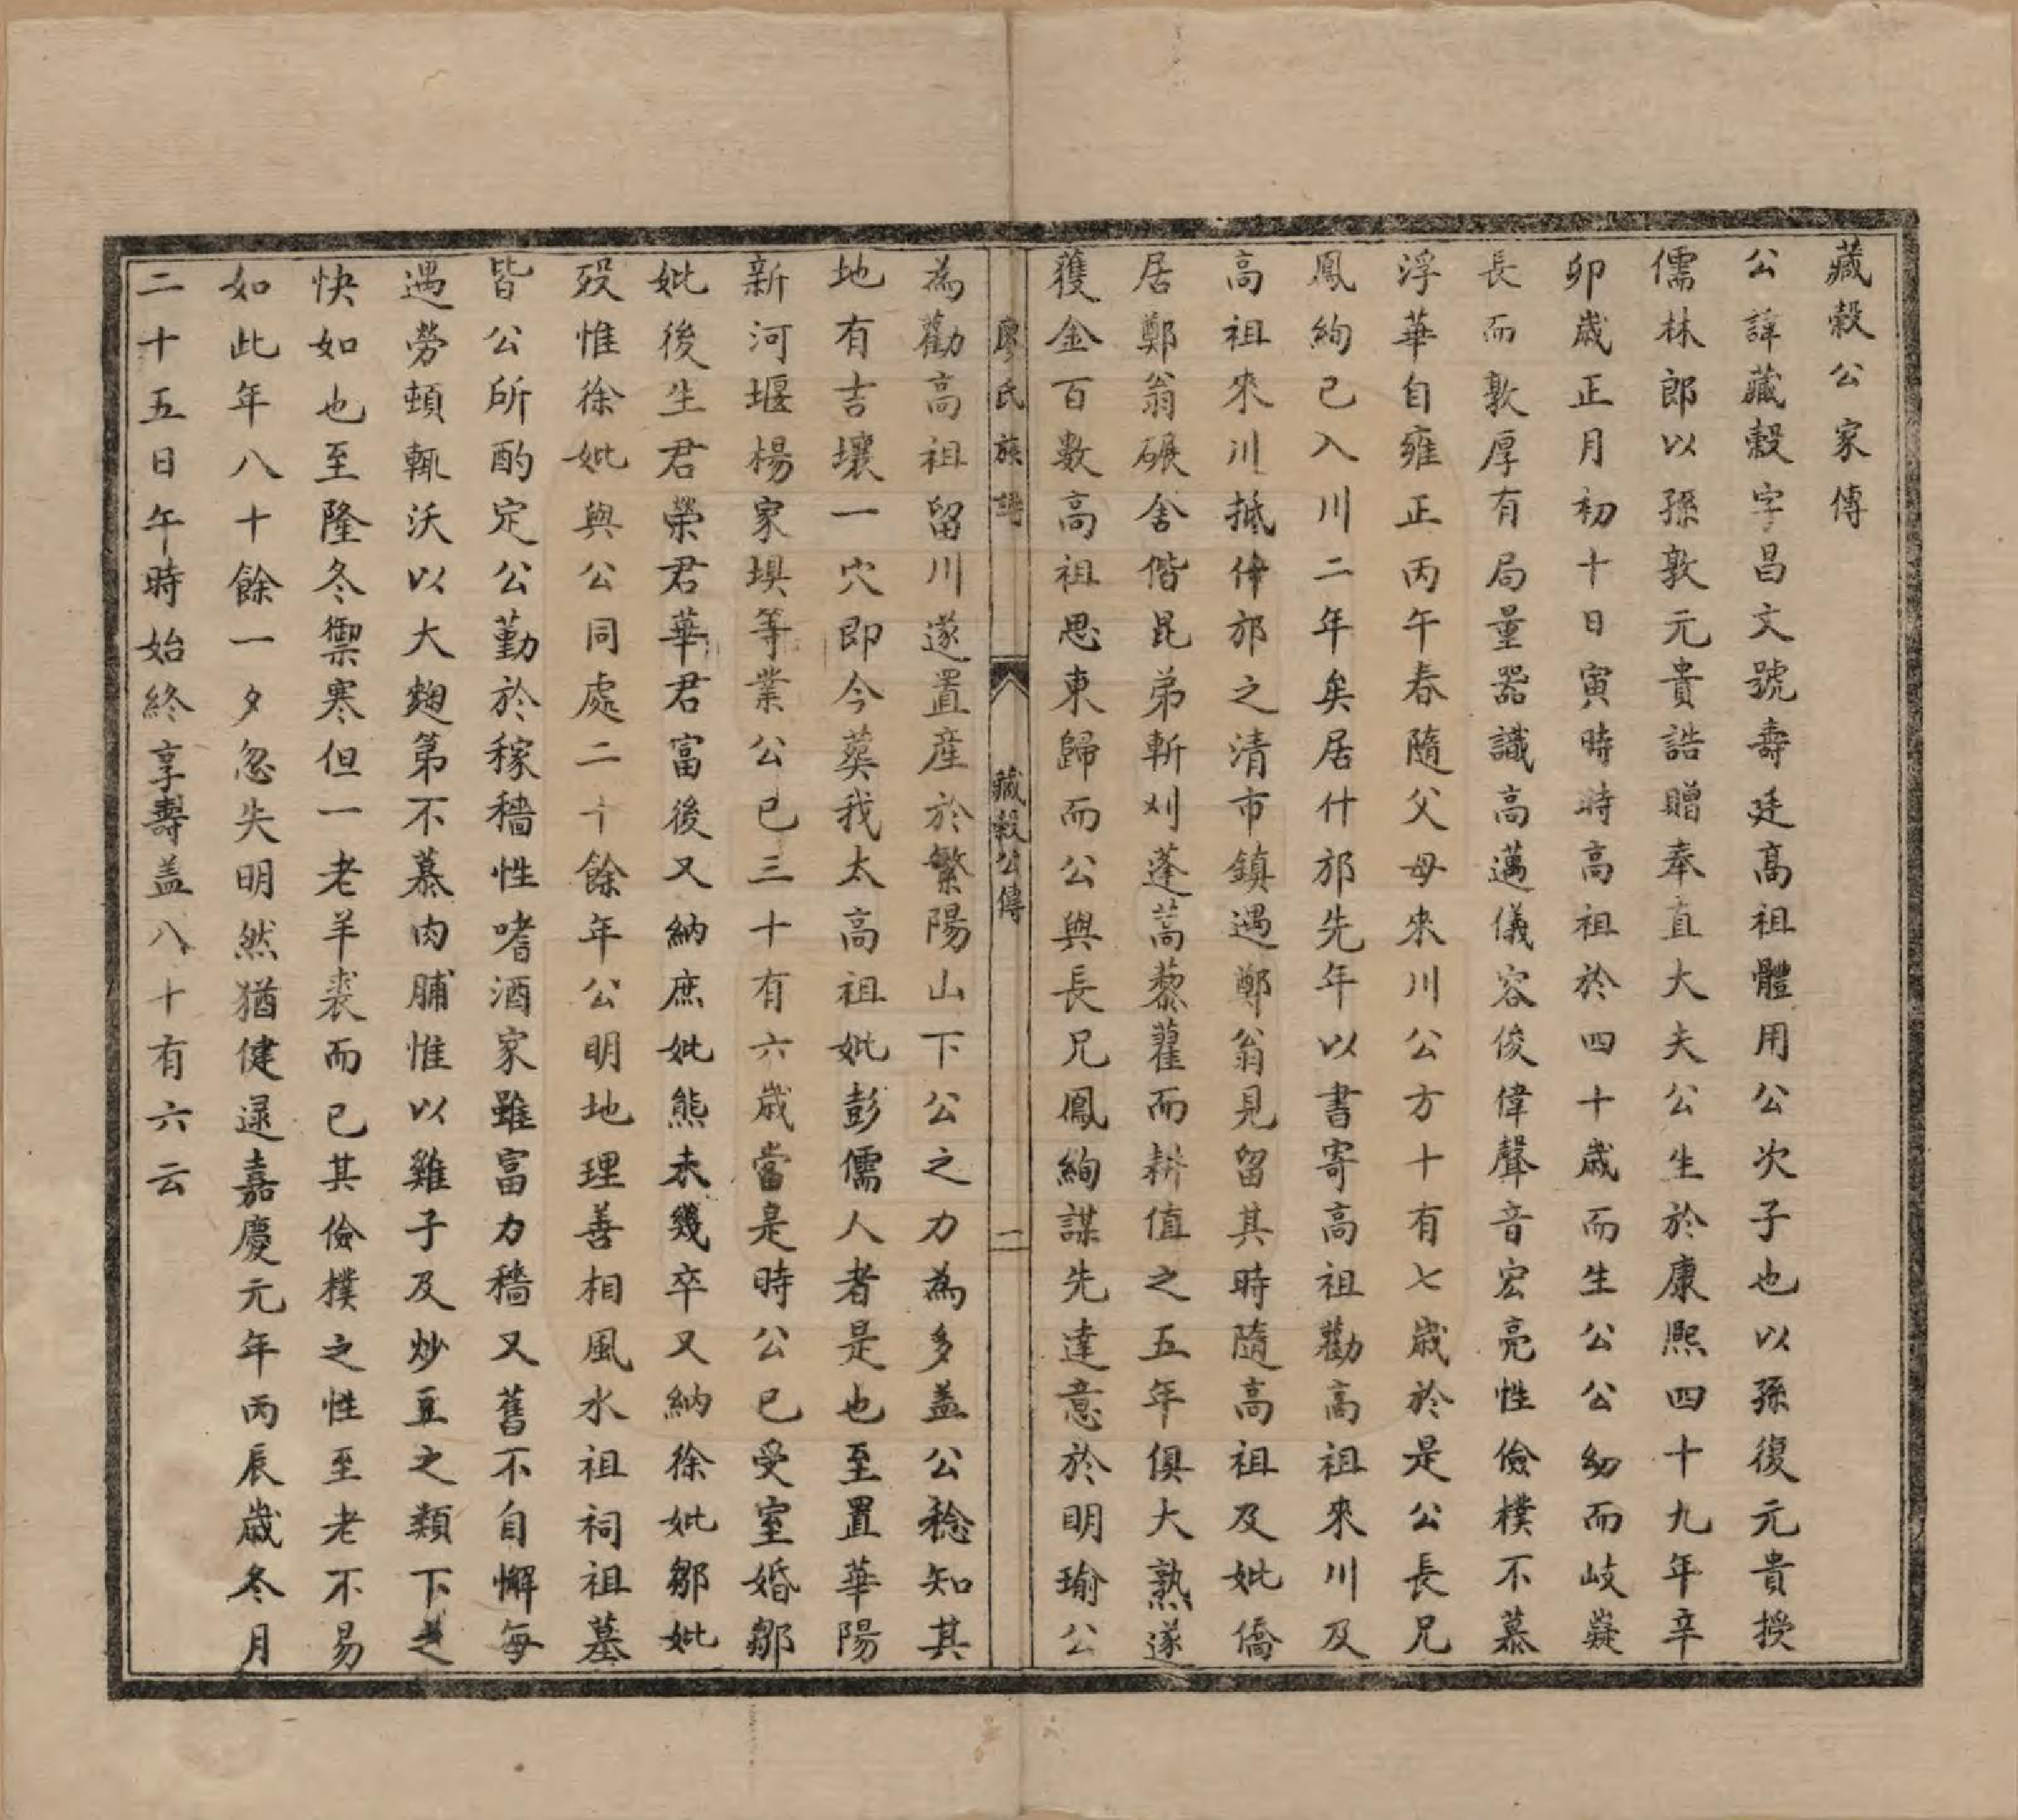 藏穀公家傳
公諱藏穀字昌文號壽廷高祖體用公次子也以孫復元貴授
儒林郎以孫敦元貴誥贈奉直大夫公生於康熙四十九年辛
卯歲正月初十日寅時時高祖於四十歲而生公公幼而岐嶷
長而敦厚有局量器識高邁儀容俊偉聲音宏亮性儉樸不慕
浮華自雍正丙午春隨父母來川公方十有七歲於是公長兄
鳳絢已入川二年矣居什邡先年以書寄高祖勸高祖來川及
高祖來川抵什邡之清市鎮遇鄭翁見留其時隨高祖及妣僑
居鄭翁碾舍偕昆弟斬刈蓬蒿藜藿而耕值之五年俱大熟遂
獲金百數高祖思東歸而公與長兄鳳絢謀先達意於明瑜公
廖氏族譜
藏穀公傳
二
為勸高祖留川遂置産於繁陽山下公之力為多蓋公稔知其
地有吉壤一穴即今葬我太高祖妣彭儒人者是也至置華陽
新河堰楊家埧等業公已三十有六歲當是時公已受室婚鄒
妣後生君榮君華君富後又納庶妣熊未幾卒又納徐妣鄒妣
歿惟徐妣與公同處二十餘年公明地理善相風水祖祠祖墓
皆公所酌定公勤於稼穡性嗜酒家雖富力穡又舊不自懈每
遇勞頓輒沃以大麯第不慕肉脯惟以雞子及炒豆之類下之
快如也至隆冬禦寒但一老羊裘而已其儉樸之性至老不易
如此年八十餘一夕忽失明然猶健逯嘉慶元年丙辰歲冬月
二十五日午時始終享壽盖八十有六云